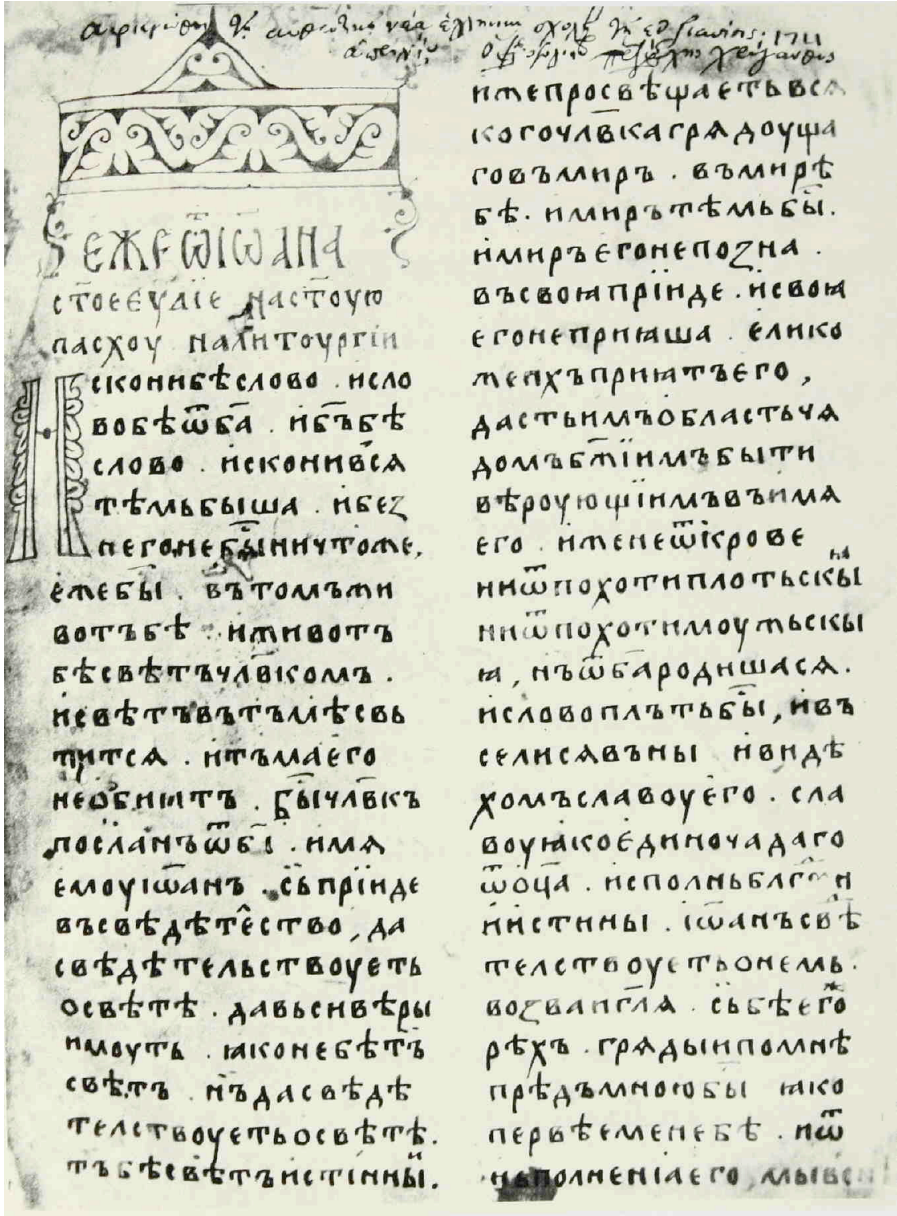 ЕЖЕѾІѠАНА
ст҃оеєуа҃іе настоую
пасхоу налитоургіи
Исконибѣслово · исло
вобѣѿба҃ · иб҃ъбѣ
слово · исконився
тѣмьбыша · ибеꙁ
негонебы҃ничтоже,
ежебы҃ · вътомъжи
вотъбѣ · иживотъ
бѣсвѣтъчл҃вкомъ ·
исвѣтъвътьмѣсвь
тится · итъмаего
необиятъ · бы҃чл҃вкъ
посланъѿб҃і · имя
емоуіѡанъ · сьпріиде
въсвѣдѣтество, да
свѣдѣтельствоуеть
освѣтѣ · давьсивѣры
имоуть · ꙗконебѣтъ
свѣтъ нъдасвѣдѣ
телствоуетьосвѣтѣ.
тъбѣсвѣтъистінныи.
ижепросвѣщаетьвся
когочл҃вкагрядоуща
говъмиръ · въмирѣ
бѣ · имирътѣмьбы҃.
имиръегонепоꙁна ·
въсвоꙗпріиде · исвоꙗ
егонеприꙗша · елико
жеихъприꙗтъего,
дастьимъобластьчя
домъбж҃іимъбыти
вѣроующіимъвъимя
его · иженеѿкрове
ниѿпохотиплотьскы
ниѿпохотимоужьскы
ꙗ, нъѿба҃родишася.
исловоплътьбы҃, ивъ
селисявъны ивидѣ
хомъславоуего · сла
воуꙗкоединочадаго
ѿоц҃а · исполнь
иистины · іѡанъсвѣ
телствоуетьонемь ·
воꙁваигл҃я · сьбѣего҃
рѣхъ · грядыипомнѣ
прѣдъмноюбы҃ ꙗко
первѣеменебѣ · иѿ
наполненіаего, мывси